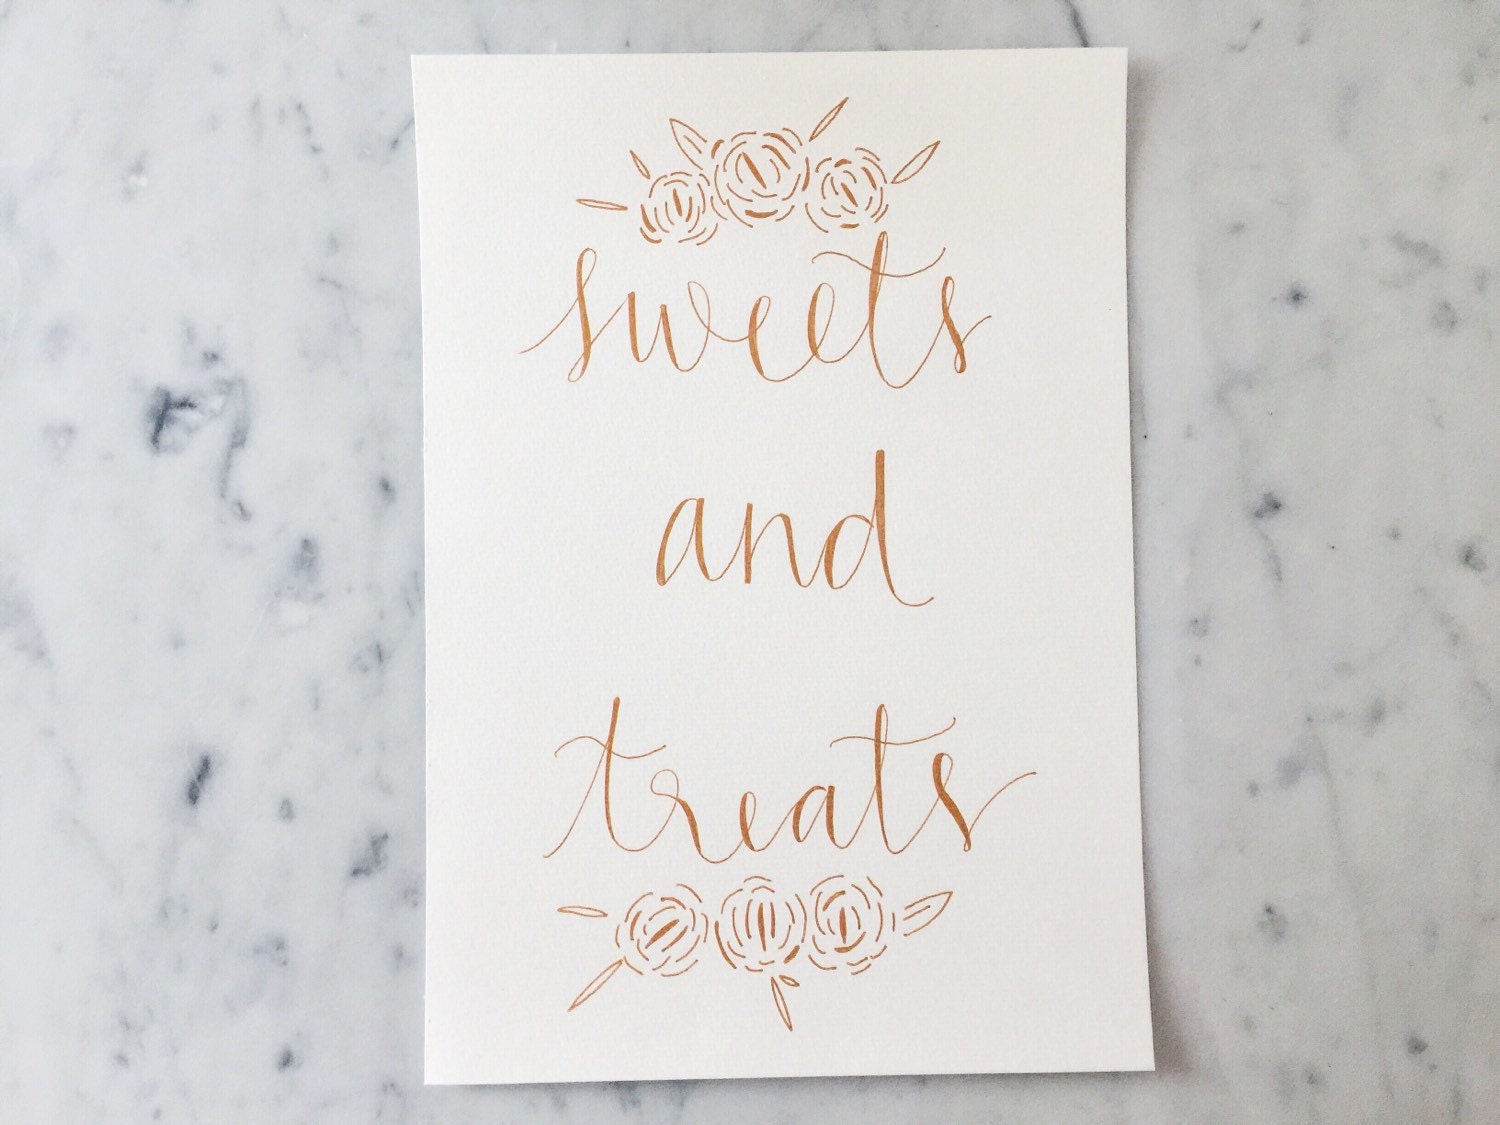 sweets
and
treats